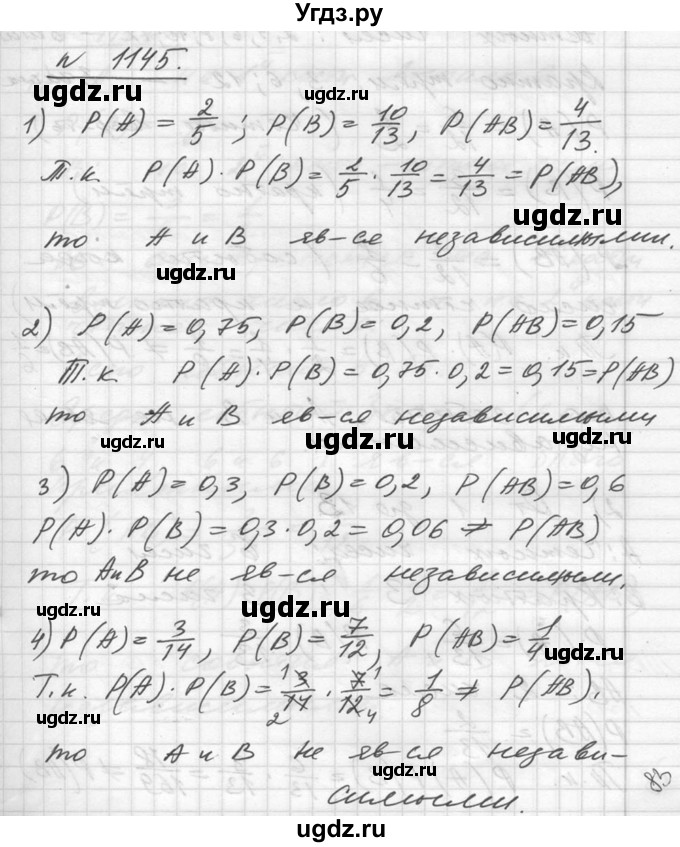 Угдз.ру
N 1145.
ugdz.ru ugdz.ru
1) P(A) = 2/5 ; P(B) = 10/13, P(AB) = 4/13.
Т.к. P(A) · P(B) = 2/5 · 10/13 = 4/13 = P(AB),
ugdz.ru
то A и B яв-ся независимыми.
ugdz.ru
2) P(A) = 0,75, P(B) = 0,2, P(AB) = 0,15
Т.к. P(A) · P(B) = 0,75 · 0,2 = 0,15 = P(AB)
то A и B яв-ся независимыми
ugdz.ru ugdz.ru
3) P(A) = 0,3, P(B) = 0,2, P(AB) = 0,6
P(A) · P(B) = 0,3 · 0,2 = 0,06 ≠ P(AB)
то A и B не яв-ся независимыми.
ugdz.ru
4) P(A) = 3/14, P(B) = 7/12, P(AB) = 1/4
ugdz.ru
Т.к. P(A) · P(B) = 3/14 · 7/12 = 1/8 ≠ P(AB).
1 1
2 4
ugdz.ru
то A и B не яв-ся незави-
ugdz.ru
83
симыми.
ugdz.ru